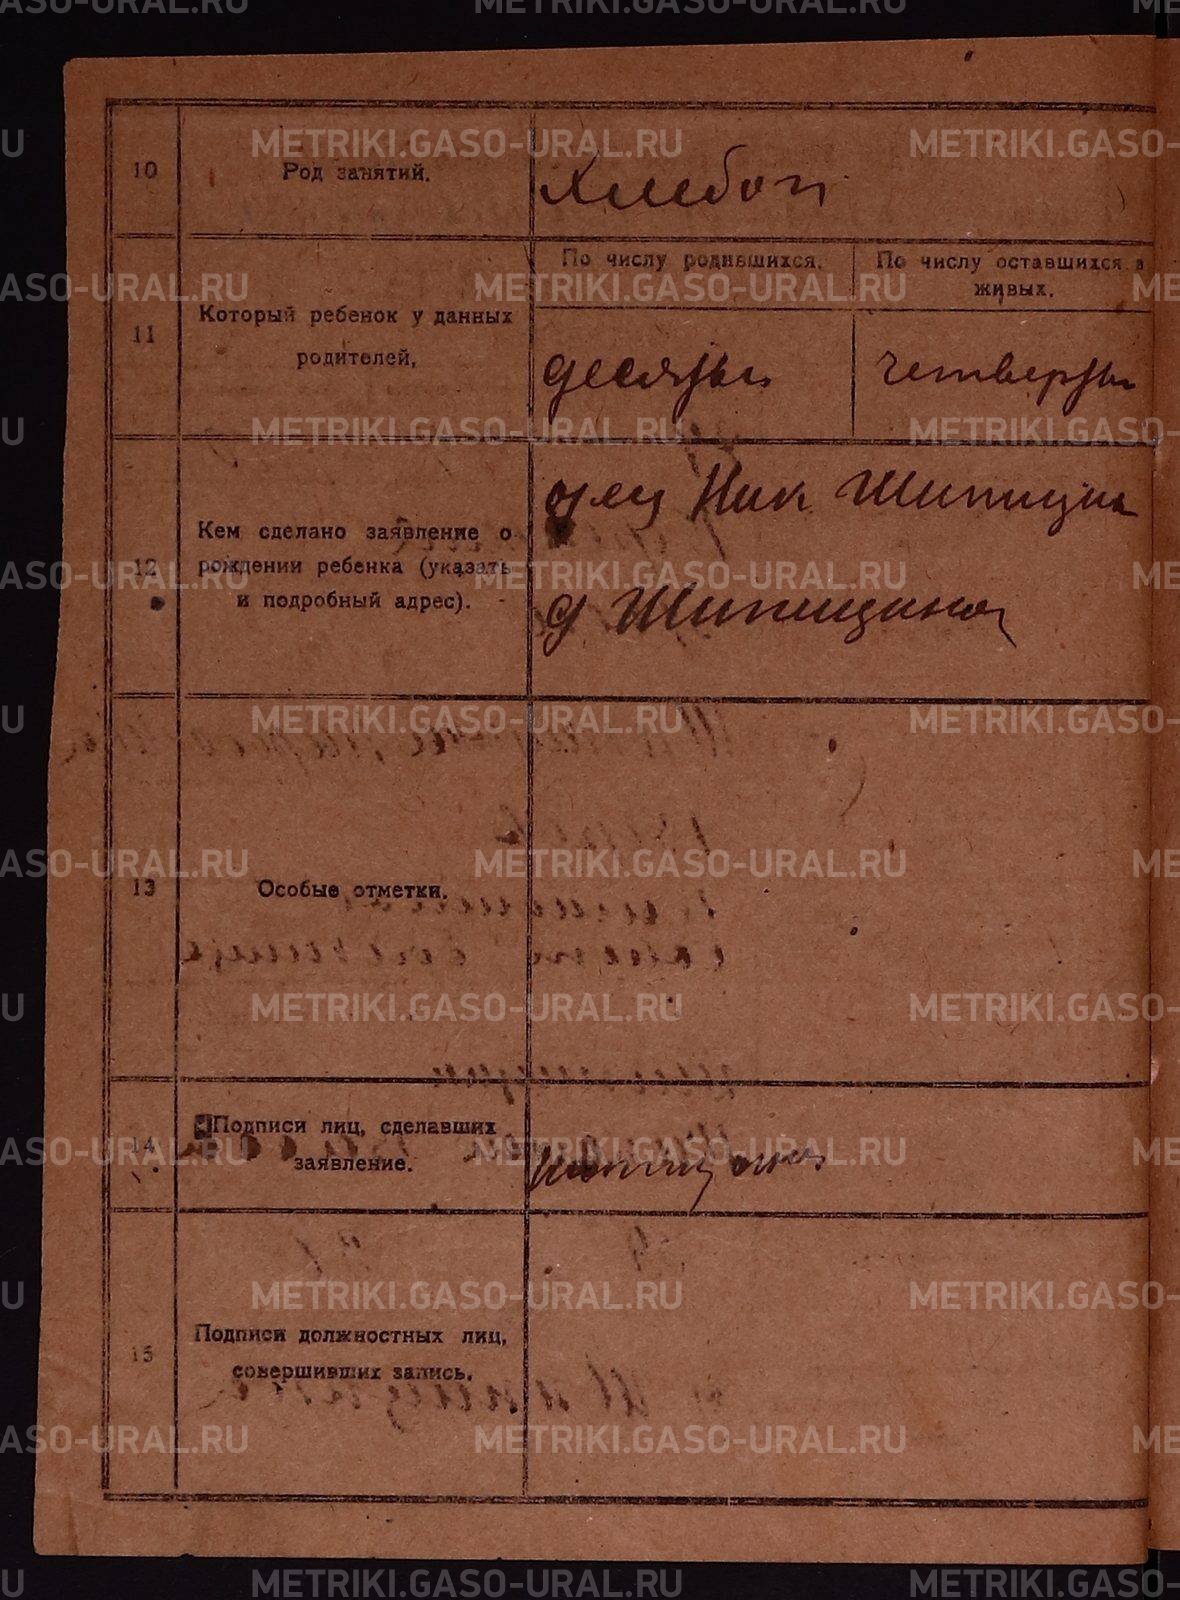 10
Род занятий.
Хлебоп
11
Который ребенок у данных
родителей,
По числу родившихся.
По числу оставшихся в
живых.
десятый
четвертый
12
Кем сделано заявление о
рождении ребенка (указать
и подробный адрес).
отец Ник Шипицин
д Шипицина
13
Особые отметки.
14
Подписи лиц, сделавших
заявление.
15
Подписи должностных лиц,
совершивших запись.
METRIKI.GASO-URAL.RU